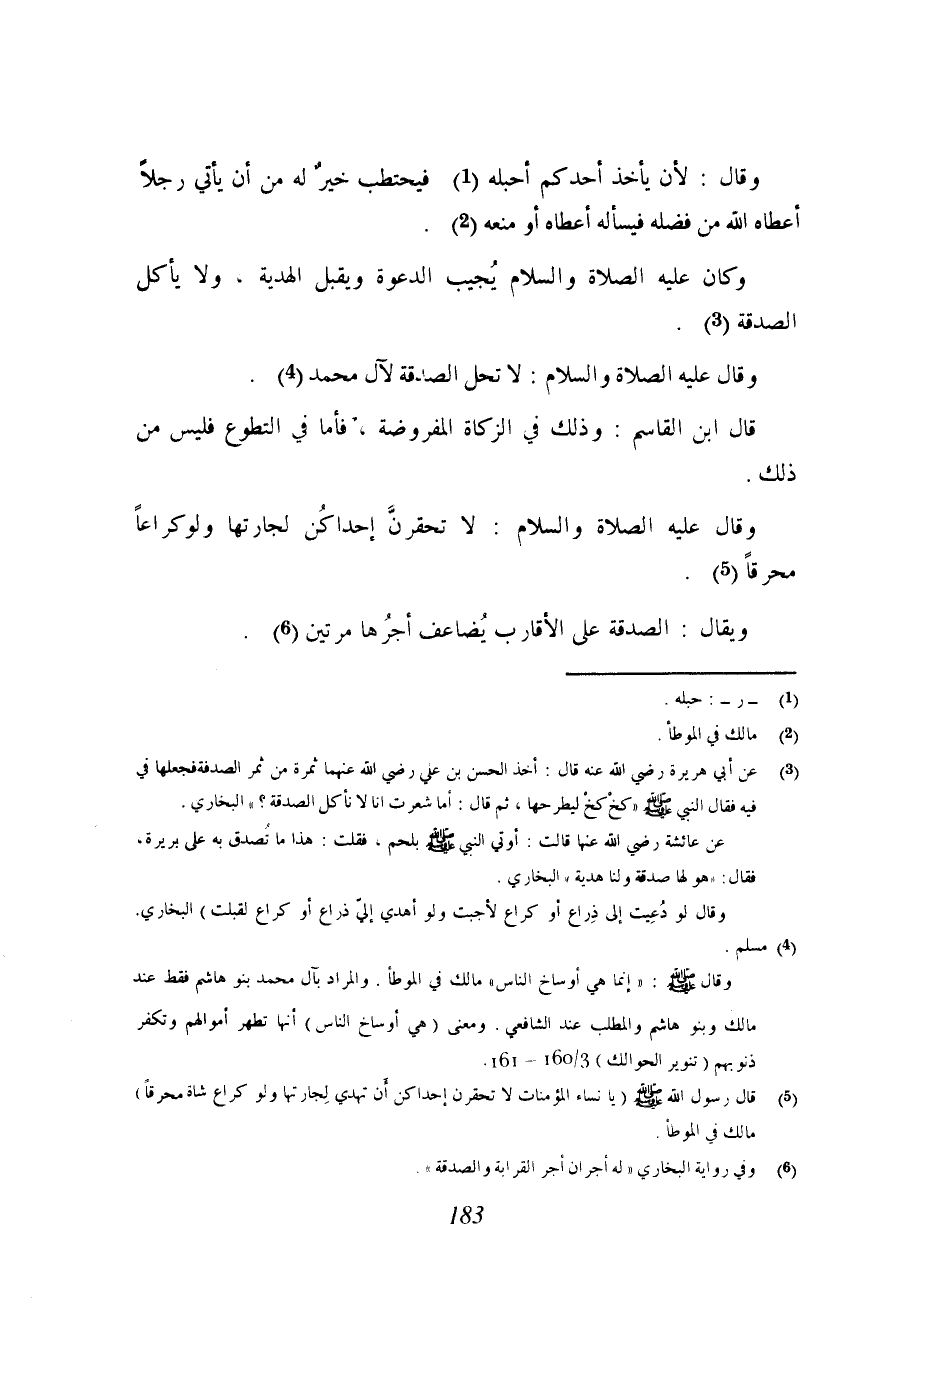 وقال : لأن يأخذ أحدكم أحبله (1) فيحتطب خيرٌ له من أن يأتي رجلاً
أعطاه الله من فضله فيسأله أعطاه أو منعه (2) .
وكان عليه الصلاة والسلام يُجيب الدعوة ويقبل الهدية ، ولا يأكل
الصدقة (3) .
وقال عليه الصلاة والسلام : لا تحل الصدقة لآل محمد (4) .
قال ابن القاسم : وذلك في الزكاة المفروضة ، فأما في التطوع فليس من
ذلك .
وقال عليه الصلاة والسلام : لا تحقرنَّ إحداكُن لجارتها ولو كراعاً
محرقاً (5) .
ويقال : الصدقة على الأقارب يُضاعف أجرُها مرتين (6) .
(1) – ر – : حبله .
(2) مالك في الموطأ .
(3) عن أبي هريرة رضي الله عنه قال : أخذ الحسن بن علي رضي الله عنهما ثمرة من ثمر الصدقة فجعلها في
فيه فقال النبي ﷺ «كخْ كخْ ليطرحها ، ثم قال : أما شعرت انا لا نأكل الصدقة ؟» البخاري .
عن عائشة رضي الله عنها قالت : أوتي النبي ﷺ بلحم ، فقلت : هذا ما تُصدق به على بريرة ،
فقال : «هو لها صدقة ولنا هدية» البخاري .
وقال لو دُعِيت إلى ذِراع أو كراع لأجبت ولو أهدي إليّ ذراع أو كراع لقبلت ) البخاري .
(4) مسلم .
وقال ﷺ : « إنما هي أوساخ الناس» مالك في الموطأ . والمراد بآل محمد بنو هاشم فقط عند
مالك وبنو هاشم والمطلب عند الشافعي . ومعنى ( هي أوساخ الناس ) أنها تطهر أموالهم وتكفر
ذنوبهم ( تنوير الحوالك ) 160/3 – 161 .
(5) قال رسول الله ﷺ ( يا نساء المؤمنات لا تحقرن إحداكن أن تهدي لِجارتها ولو كراع شاة محرقاً )
مالك في الموطأ .
(6) وفي رواية البخاري « له أجران أجر القرابة والصدقة » .
183